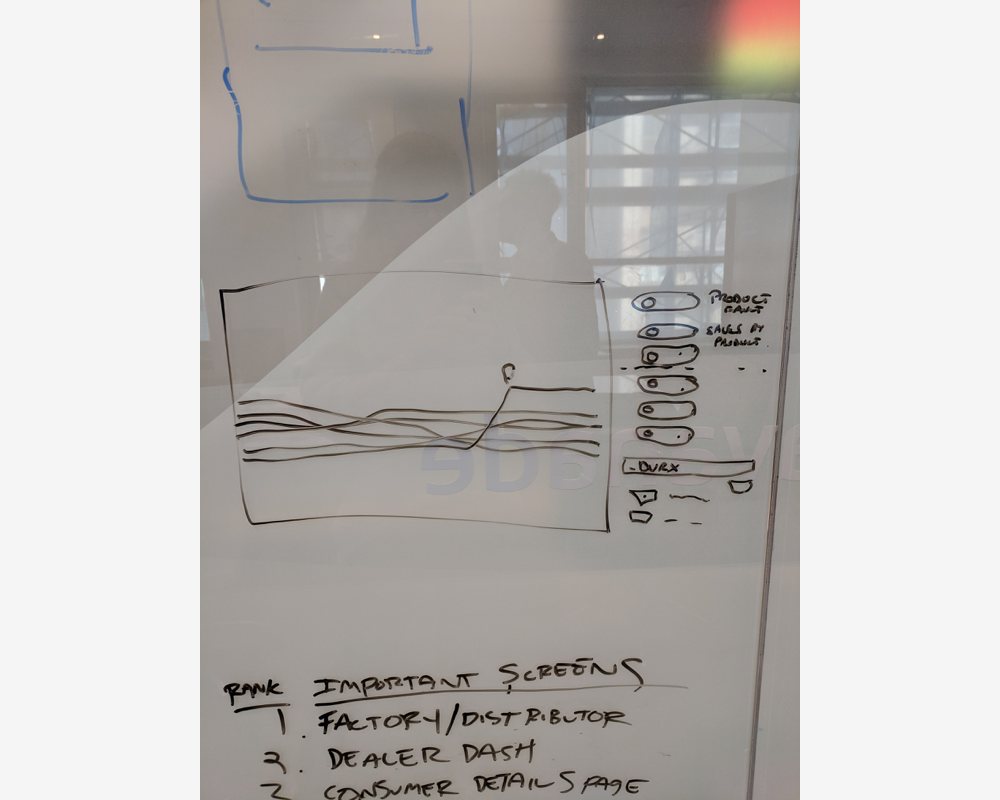 PRODUCT
SALES BY
PRODUCT
RANK IMPORTANT SCREENS
1. FACTORY/DISTRIBUTOR
2. DEALER DASH
3 CONSUMER DETAILS PAGE